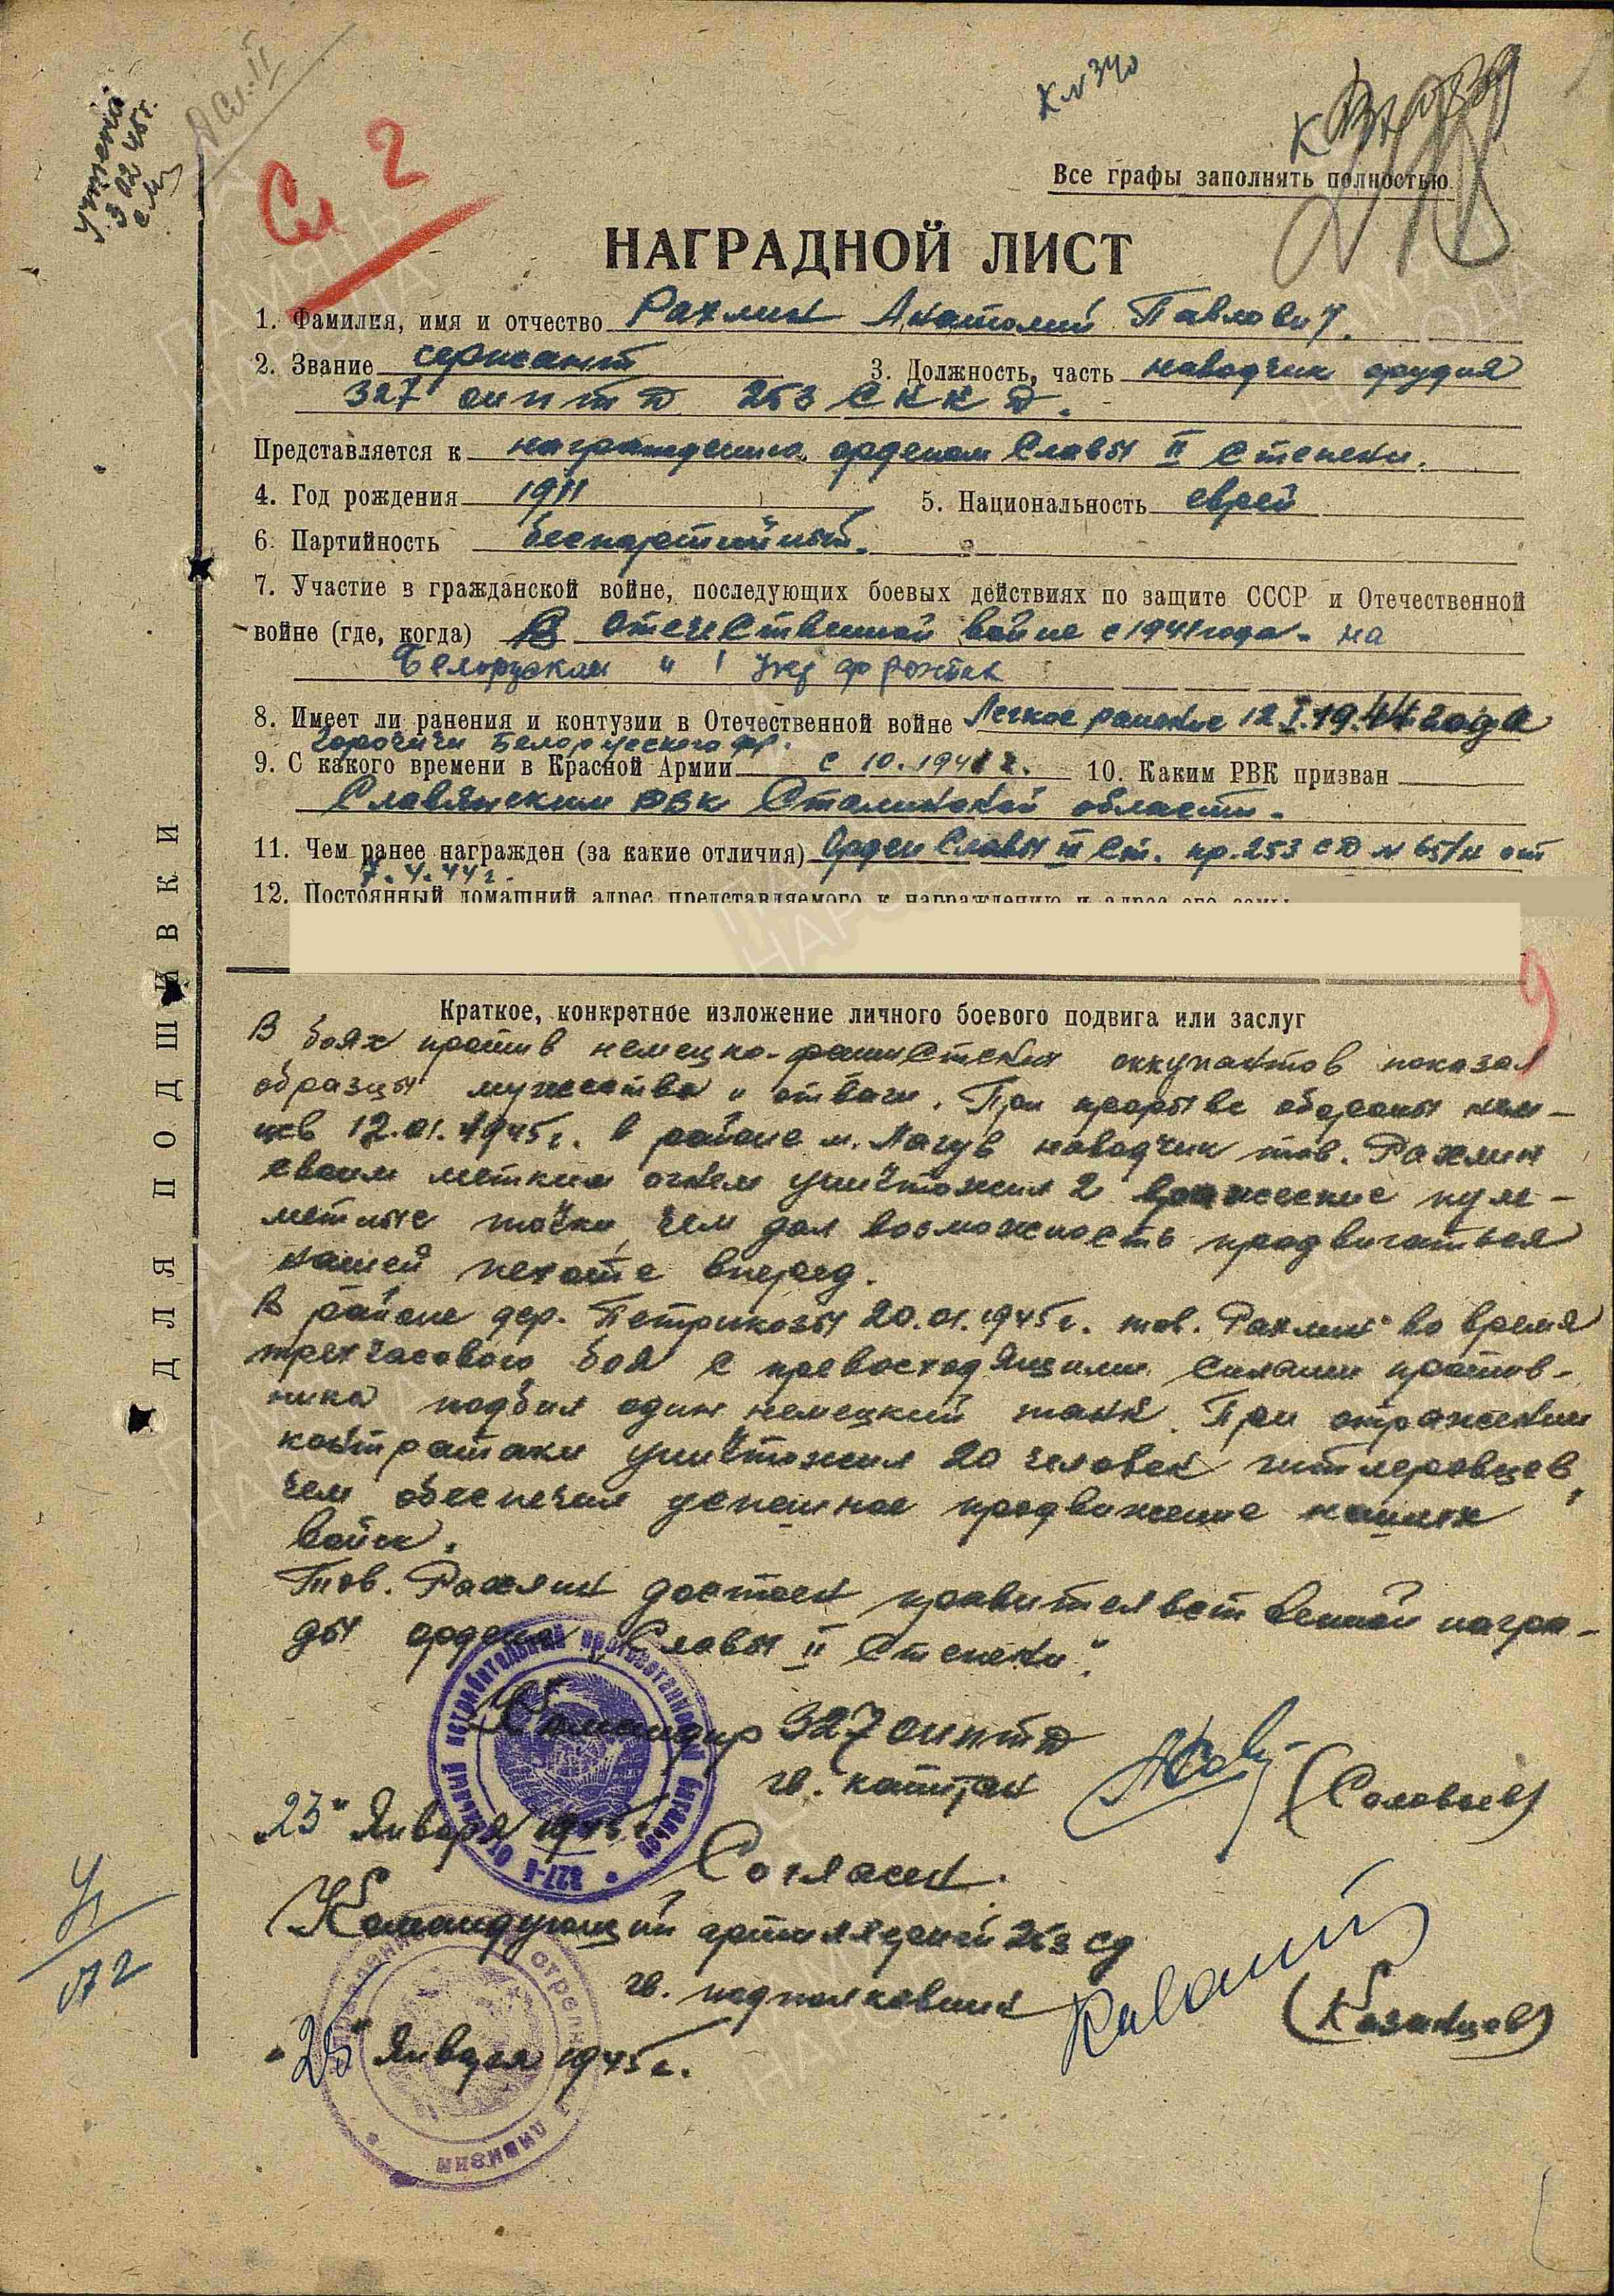 Учтено
3 02 45г.
Сл. II
Сл 2
К N 340
Все графы заполнять полностью
НАГРАДНОЙ ЛИСТ
1. Фамилия, имя и отчество Рахлин Анатолий Павлович.
2. Звание сержант 3. Должность, часть наводчик орудия
327 оиптд 253 СККД.
Представляется к награждению орденом Славы II Степени.
4. Год рождения 1911 5. Национальность еврей
6. Партийность беспартийный.
7. Участие в гражданской войне, последующих боевых действиях по защите СССР и Отечественной
войне (где, когда) В Отечественной войне с 1941 года - на
Белоруском и 1 Укр фронтах
8. Имеет ли ранения и контузии в Отечественной войне Легкое ранение 12.I.1944 года
Горочичи Белорусского фр.
9. С какого времени в Красной Армии с 10.1941 г. 10. Каким РВК призван
Славянским РВК Сталинской области.
11. Чем ранее награжден (за какие отличия) Орден Славы III Ст. пр. 253 СД N 65/н от
7.4.44г.
12. Постоянный домашний адрес представляемого к награждению и адрес его семьи
Краткое, конкретное изложение личного боевого подвига или заслуг
В боях против немецко-фашистских оккупантов показал
образцы мужества и отваги. При прорыве обороны нем-
цев 12.01.1945г. в районе м. Лагув наводчик тов. Рахлин
своим метким огнем уничтожил 2 вражеские пуле-
метные точки, чем дал возможность продвигаться
нашей пехоте вперед.
В районе дер. Петрикозы 20.01.1945г. тов. Рахлин во время
трехчасового боя с превосходящими силами против-
ника подбил один немецкий танк. При отражении
контратаки уничтожил 20 человек гитлеровцев,
чем обеспечил успешное продвижение наших
войск.
Тов. Рахлин достоен правительственной награ-
ды ордена „Славы II Степени".
Командир 327 оиптд
гв. капитан (Соловьев)
„23" Января 1945г.
Согласен.
Командующий артиллерией 253 сд
гв. подполковник (Казанцев)
„25" Января 1945г.
327-й Отдельный истребительный противотанковый
дивизии
ДЛЯ ПОДШИВКИ